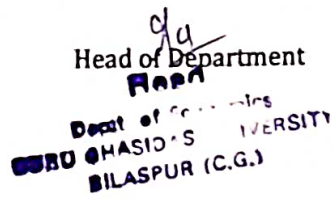 Head of Department
Head
Deptt of
GURU GHASIDAS
BILASPUR (C.G.)